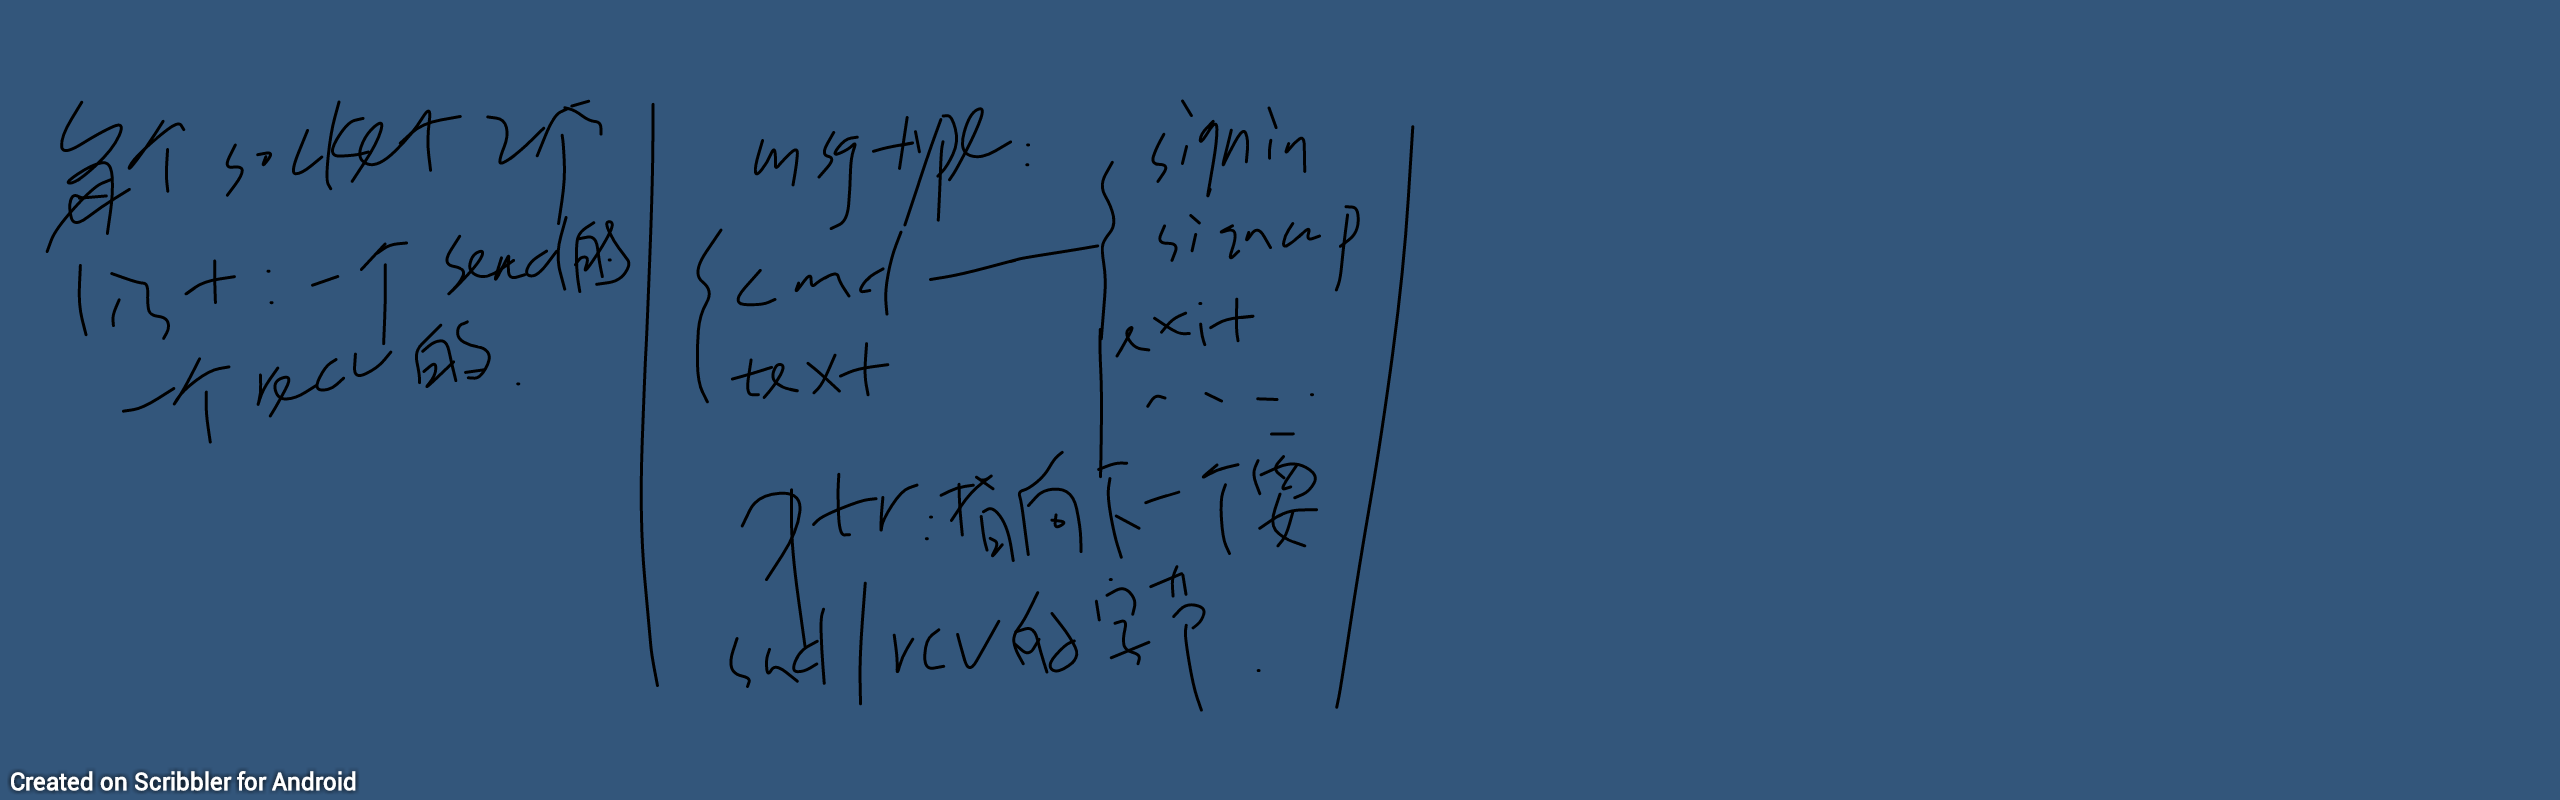 每个socket 2个
队列:一个send的
一个recv的.
msgtype:
cmd
text
signin
signup
exit
ptr:指向下一个要
snd/rcv的字节.
Created on Scribbler for Android